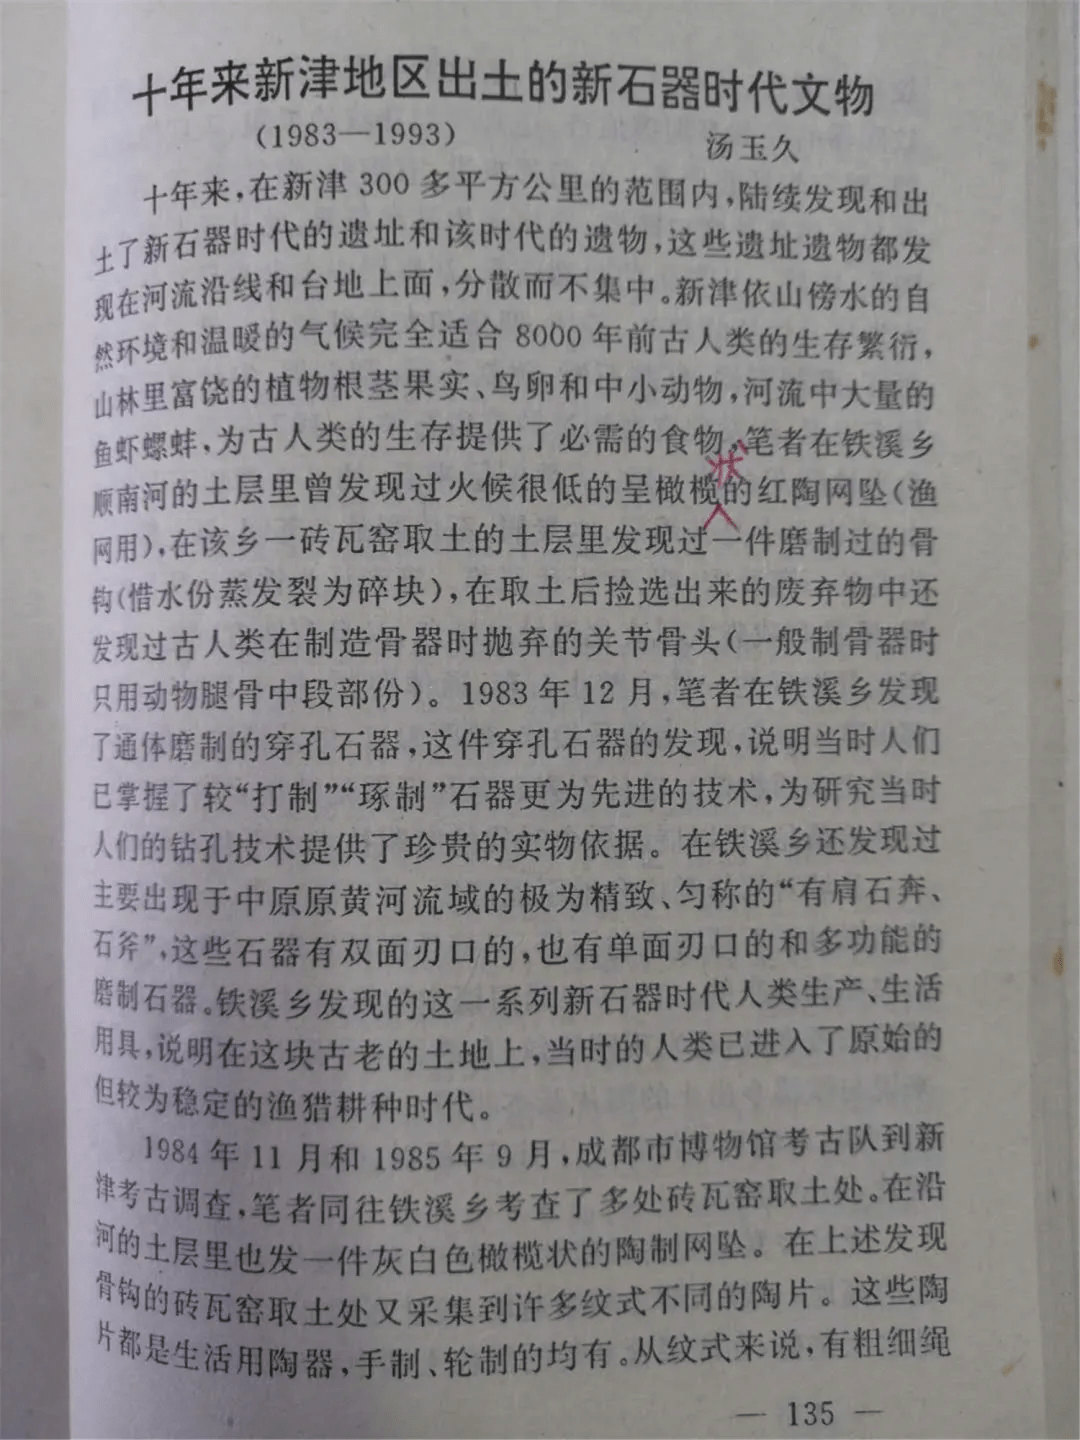 十年来新津地区出土的新石器时代文物
(1983—1993) 汤玉久
十年来,在新津300多平方公里的范围内,陆续发现和出
土了新石器时代的遗址和该时代的遗物,这些遗址遗物都发
现在河流沿线和台地上面,分散而不集中。新津依山傍水的自
然环境和温暖的气候完全适合8000年前古人类的生存繁衍,
山林里富饶的植物根茎果实、鸟卵和中小动物,河流中大量的
鱼虾螺蚌,为古人类的生存提供了必需的食物,笔者在铁溪乡
状
顺南河的土层里曾发现过火候很低的呈橄榄的红陶网坠(渔
网用),在该乡一砖瓦窑取土的土层里发现过一件磨制过的骨
钩(惜水份蒸发裂为碎块),在取土后捡选出来的废弃物中还
发现过古人类在制造骨器时抛弃的关节骨头(一般制骨器时
只用动物腿骨中段部份)。1983年12月,笔者在铁溪乡发现
了通体磨制的穿孔石器,这件穿孔石器的发现,说明当时人们
已掌握了较“打制”“琢制”石器更为先进的技术,为研究当时
人们的钻孔技术提供了珍贵的实物依据。在铁溪乡还发现过
主要出现于中原原黄河流域的极为精致、匀称的“有肩石奔、
石斧”,这些石器有双面刃口的,也有单面刃口的和多功能的
磨制石器。铁溪乡发现的这一系列新石器时代人类生产、生活
用具,说明在这块古老的土地上,当时的人类已进入了原始的
但较为稳定的渔猎耕种时代。
1984年11月和1985年9月,成都市博物馆考古队到新
津考古调查,笔者同往铁溪乡考查了多处砖瓦窑取土处。在沿
河的土层里也发一件灰白色橄榄状的陶制网坠。在上述发现
骨钩的砖瓦窑取土处又采集到许多纹式不同的陶片。这些陶
片都是生活用陶器,手制、轮制的均有。从纹式来说,有粗细绳
— 135 —